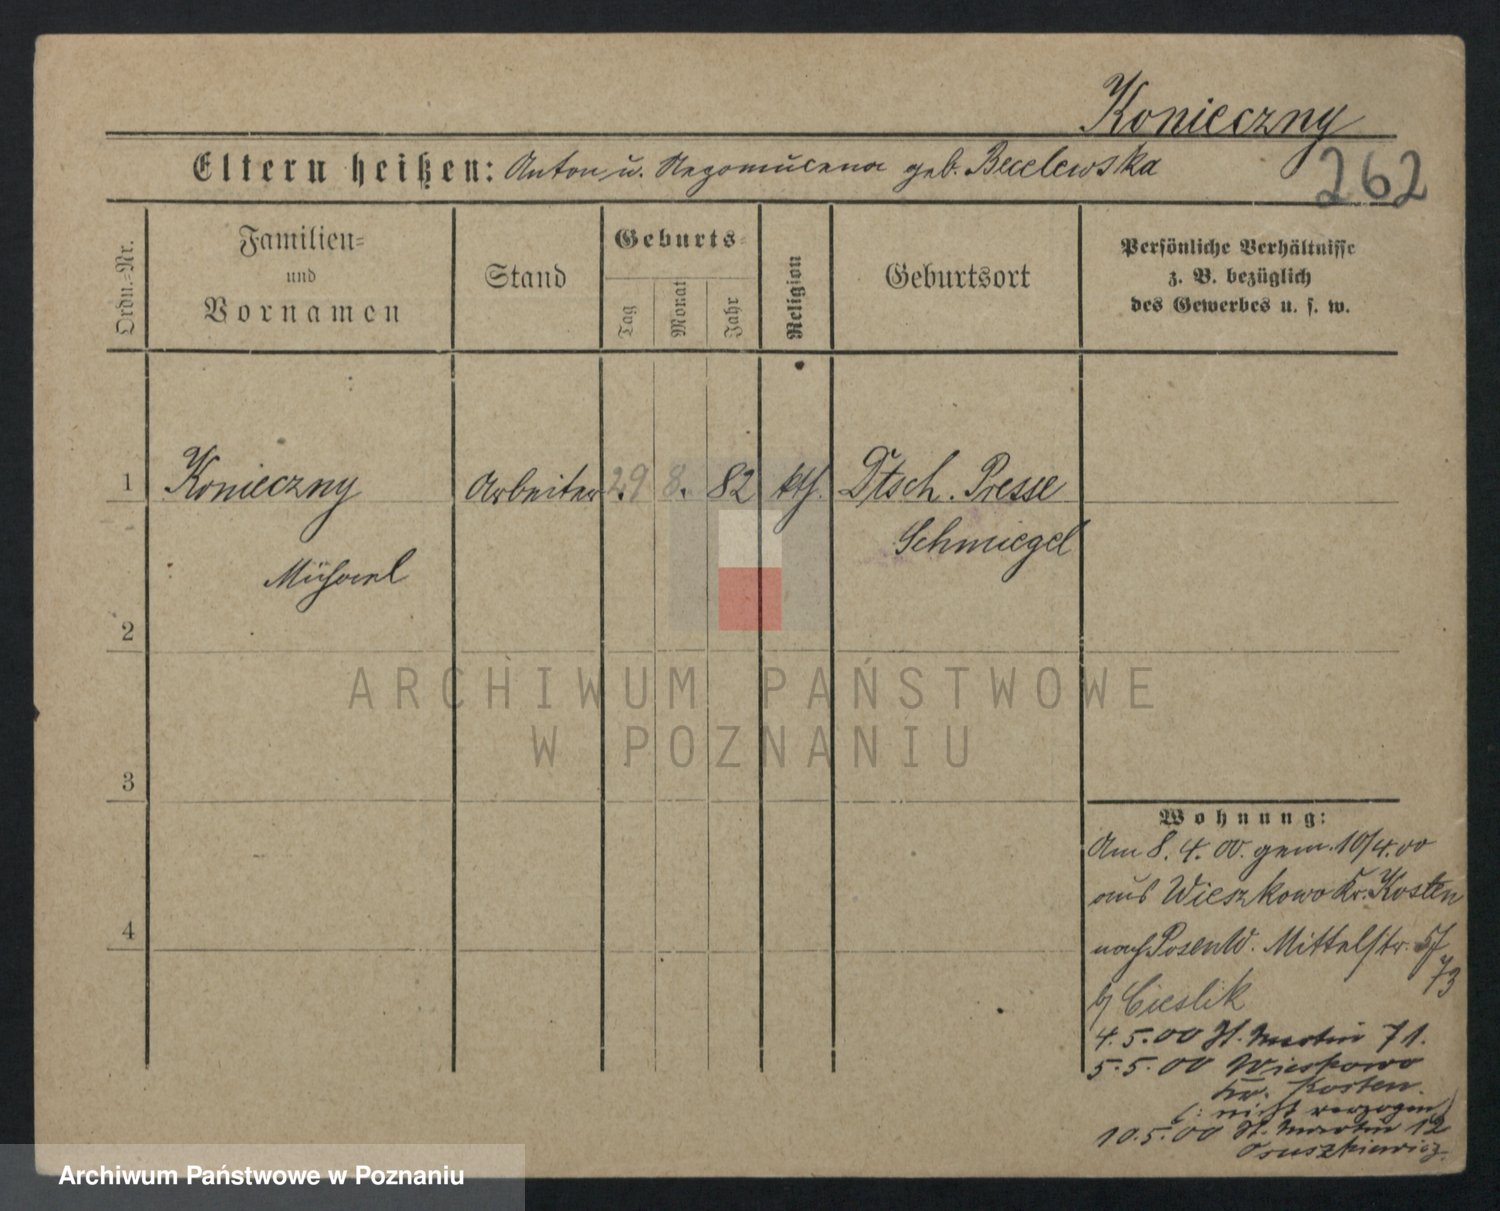 Konieczny
Eltern heißen: Anton u. Nepomucena geb. Becelewska
262
Ordn.-Nr.
Familien-
und
Vornamen
Stand
Geburts-
Tag
Monat
Jahr
Religion
Geburtsort
Persönliche Verhältnisse
z. B. bezüglich
des Gewerbes u. s. w.
1 Konieczny Arbeiter 29 8. 82 kth. Dtsch. Presse
Schmiegel
Michael
2
3
4
Wohnung:
Am 8. 4. 00. gem. 10/4.00
aus Wieszkowo Kr. Kosten
nach Posen W. Mittelstr.
b/ Cieslik
4. 5. 00 St. Martin 71.
5. 5. 00 Wieskowo
Kr. Kosten.
(: nicht verzogen)
10. 5. 00 St. Martin 12
ARCHIWUM PAŃSTWOWE
W POZNANIU
Archiwum Państwowe w Poznaniu